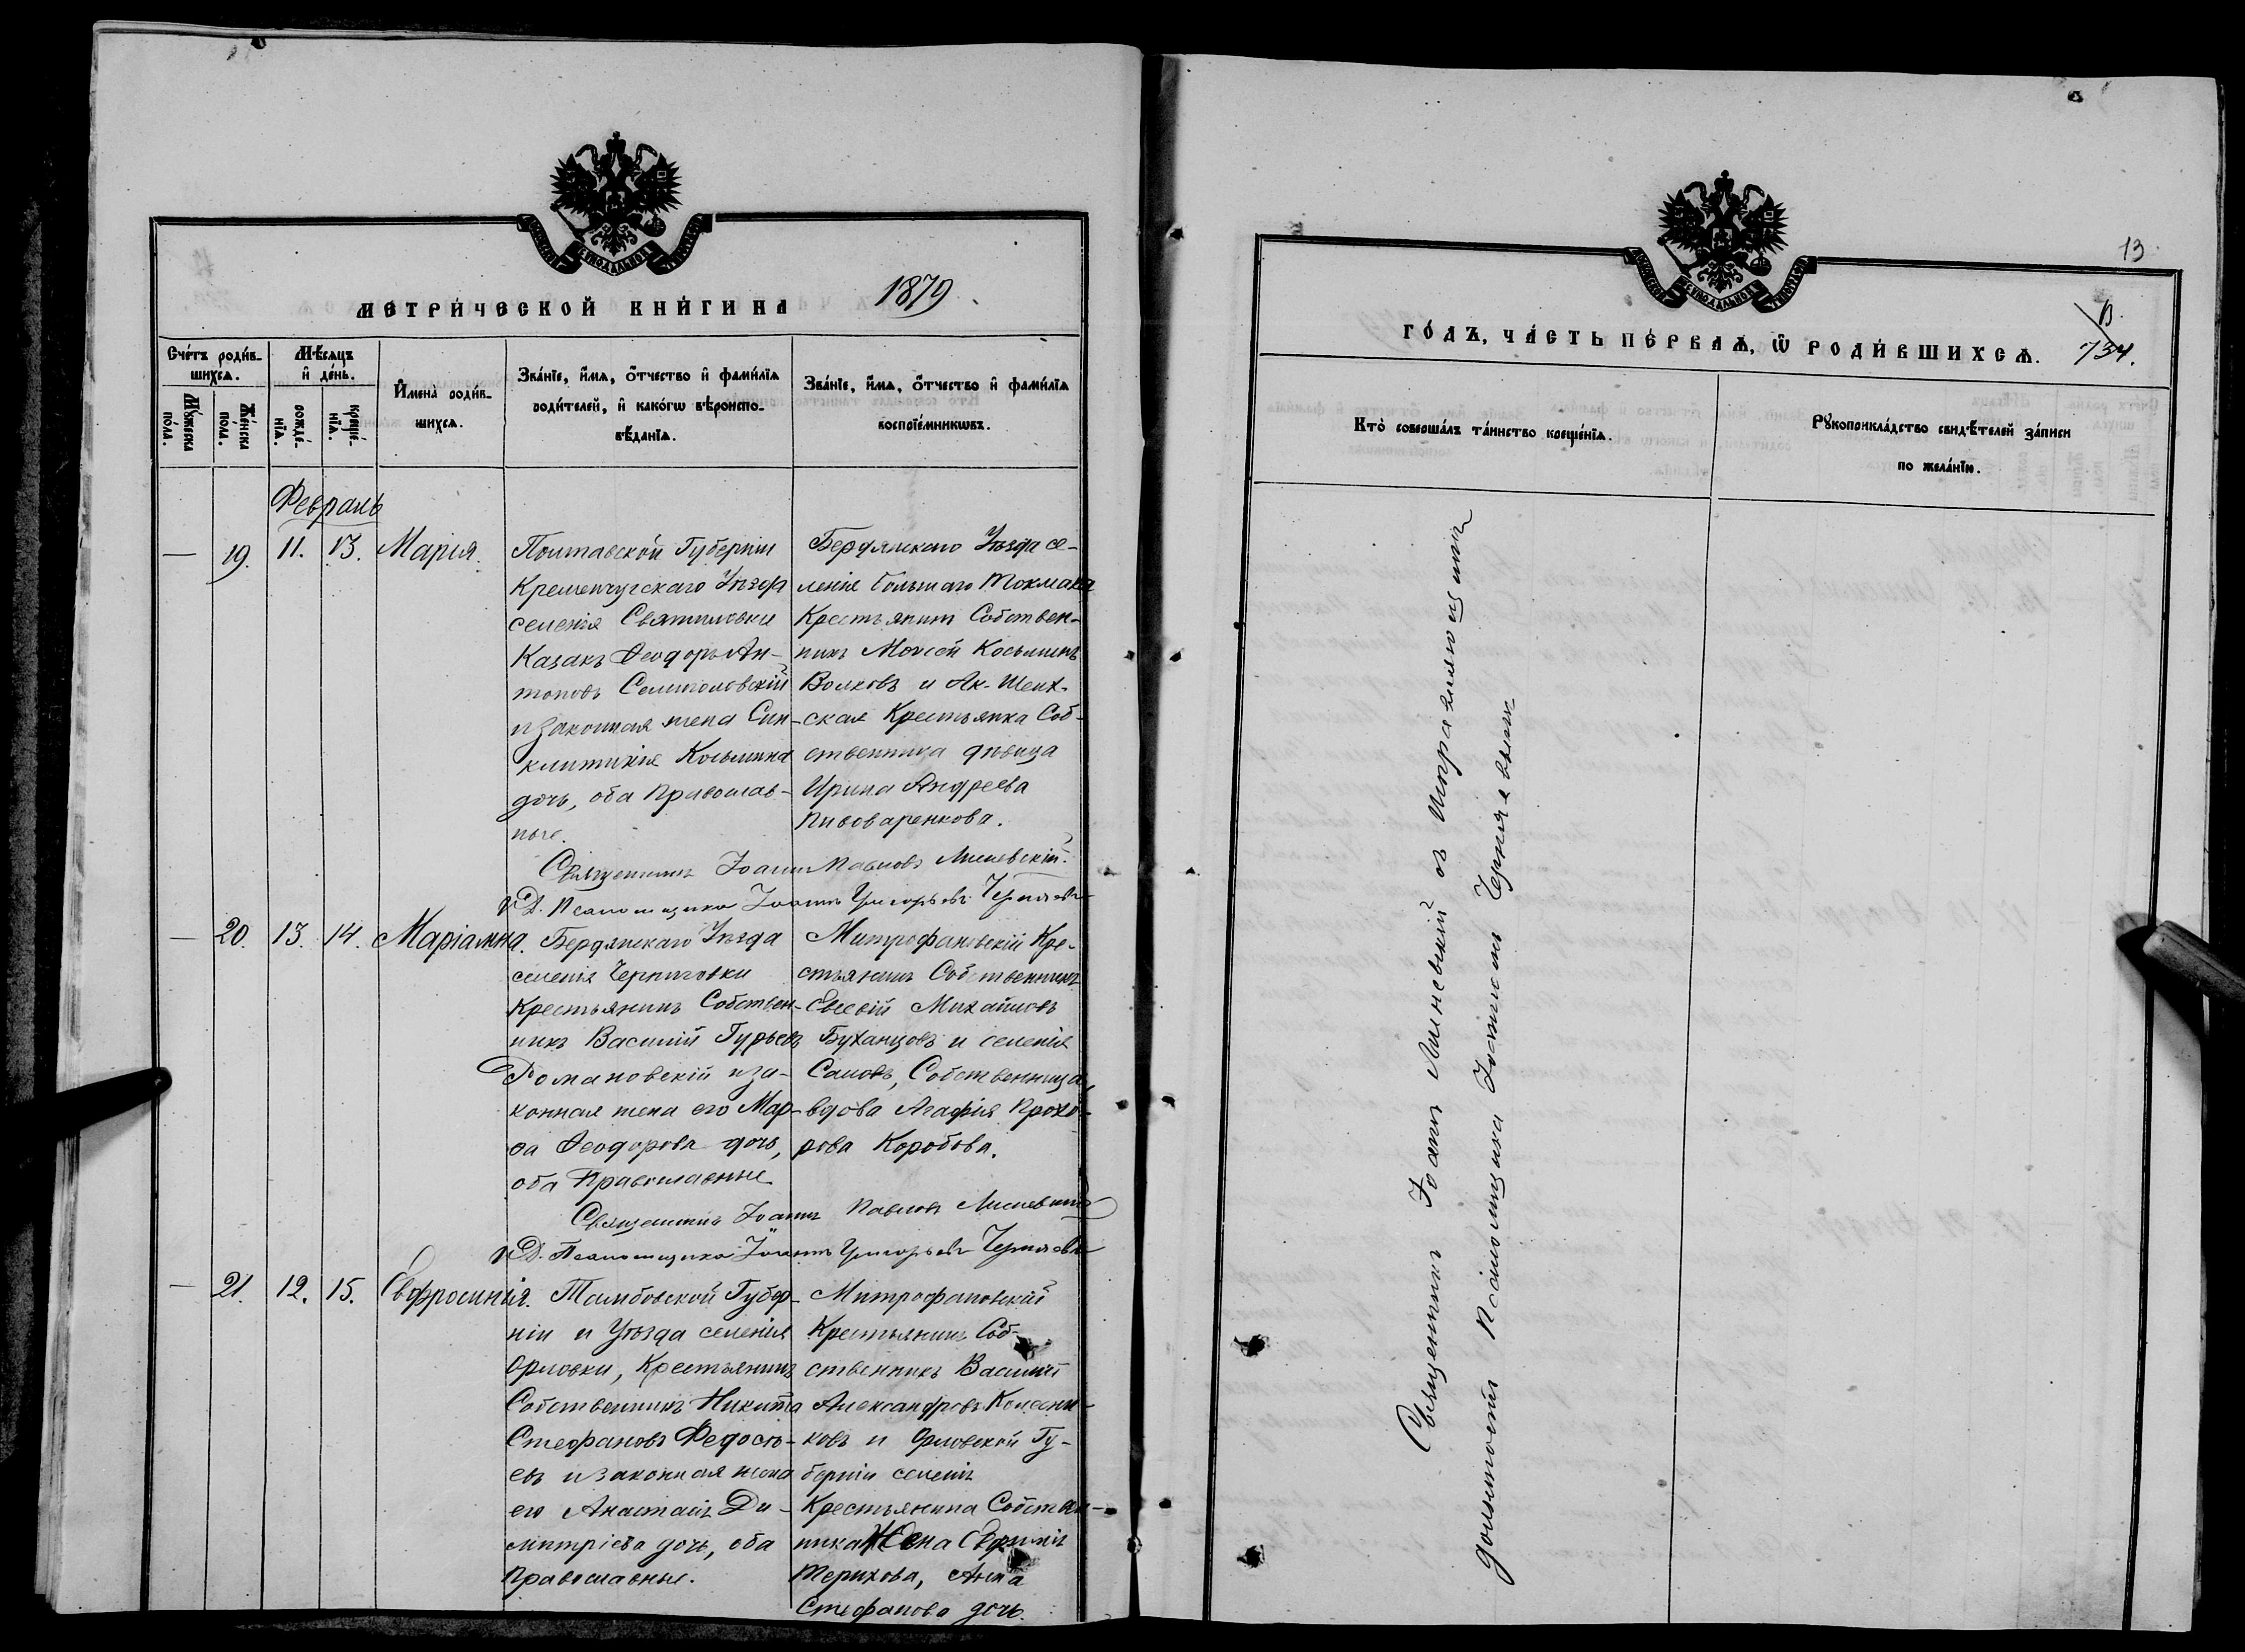 МЕТРИ́ЧЕСКОЙ КНИ́ГИ НА 1879.
Сче́тъ роди́вшихсѧ.
Мѣ́сѧцъ и҆ де́нь.
Мꙋ́жеска по́ла.
Же́нска по́ла.
рожде́нїѧ.
креще́нїѧ.
И҆мена̀ роди́вшихсѧ.
Зва́нїе, и҆́мѧ, ѻ҆́тчество и҆ фами́лїѧ роди́телей, и҆ како́гѡ вѣроисповѣ́данїѧ.
Зва́нїе, и҆́мѧ, ѻ҆́тчество и҆ фами́лїѧ воспрїе́мникѡвъ.
Февраль
— 19. 11. 13. Марія.
Полтавской Губерніи
Кременчугскаго Уѣзда
селенія Святиловки
Казакъ Ѳеодоръ Ан-
тоновъ
и законная жена Син-
клитикія Косьмина
дочь, оба Православ-
ные.
Бердянскаго Уѣзда се-
ленія Большаго Токмака
Крестьянинъ Собствен-
никъ Моисей Косьминъ
Волковъ и Ак-Шеих-
ская Крестьянка Соб-
ственника дѣвица
Ирина Андреева
Пивоваренкова.
Священникъ Іоаннъ Павловъ
И. Д. Псаломщика Іоаннъ Григорьевъ Черняевъ
— 20. 13. 14. Маріамна.
Бердянскаго Уѣзда
селенія Черниговки
Крестьянинъ Собствен-
никъ Василій Гурьевъ
Романовскій и за-
конная жена его Мар-
ѳа Ѳеодорова дочь,
оба Православные
Митрофановскій Кре-
стьянинъ Собственникъ
Евсевій Михайловъ
Буханцовъ и селенія
Собственница,
вдова Агафія Прохо-
рова Коробова.
Священникъ Іоаннъ Павловъ
И. Д. Псаломщика Іоаннъ Григорьевъ Черняевъ
— 21. 12. 15. Евфросинія.
Тамбовской Губер-
ніи и Уѣзда селенія
Орловки, Крестьянинъ
Собственникъ Никита
Стефановъ Федосѣ-
евъ и законная жена
его Анастасія Ди-
митріева дочь, оба
Православные.
Митрофановскій
Крестьянинъ Соб-
ственникъ Василій
Александровъ Колесни-
ковъ и Орловской Гу-
берніи селенія
Крестьянина Собствен-
ника Жена Евфимія
Терихова, Анна
Стефанова дочь.
13
ГО́ДЪ, ЧА́СТЬ ПЕ́РВАѦ, Ѡ҆ РОДИ́ВШИХСѦ.
13.
734.
Кто̀ соверша́лъ та́инство креще́нїѧ.
Рꙋкоприкла́дство свидѣ́телей за́писи по жела́нїю.
Священникъ Іоаннъ съ Исправляющимъ
должность Псаломщика Іоанномъ Черняевымъ